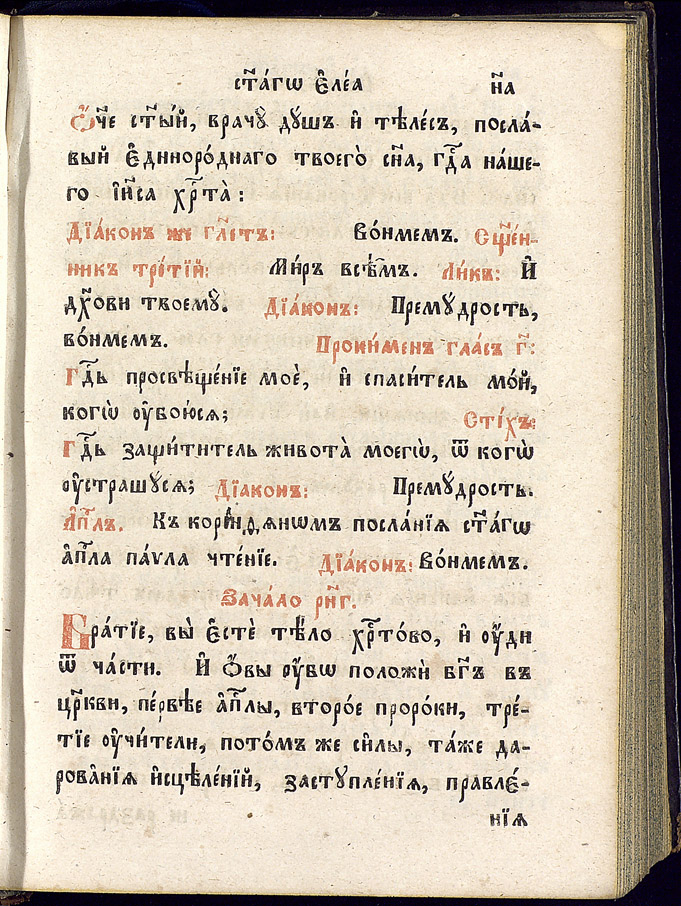 ст҃а́гѡ є҆ле́а н҃а
Ѿ́ч҃е ст҃ы́й, врачꙋ̀ дꙋ́шъ и҆ тѣле́съ, посла́-
вый є҆диноро́днаго твоего̀ сн҃а, гдⷭ҇а на́ше-
го і҆и҃са хрⷭ҇та̀:
Дїа́конъ же гл҃етъ: Во́нмемъ. Сщ҃е́н-
никъ тре́тїй: Ми́ръ всѣ̑мъ. Ли́къ: И҆
дх҃ови твоемꙋ̀. Дїа́конъ: Премꙋ́дрость,
во́нмемъ. Проки́менъ гла́съ г҃:
Гдⷭ҇ь просвѣще́нїе моѐ, и҆ спаси́тель мо́й,
когѡ̀ ᲂу҆бою́сѧ; Сті́хъ:
Гдⷭ҇ь защи́титель живота̀ моегѡ̀, ѿ когѡ̀
ᲂу҆страшꙋ́сѧ; Дїа́конъ: Премꙋ́дрость.
А҆пⷭ҇лъ. Къ корі́нѳѧнѡмъ посла́нїѧ ст҃а́гѡ
а҆пⷭ҇ла па́ѵла чте́нїе. Дїа́конъ: Во́нмемъ.
Зача́ло рн҃г.
Бра́тїе, вы̀ є҆стѐ тѣ́ло хрⷭ҇то́во, и҆ ᲂу҆́ди
ѿ ча́сти. И҆ ѻ҆́вы ᲂу҆́бѡ положѝ бг҃ъ въ
цр҃кви, пе́рвѣе а҆пⷭ҇лы, второ́е проро́ки, тре́-
тїе ᲂу҆чи́тели, пото́мъ же си̑лы, та́же да-
рова̑нїѧ и҆сцѣле́нїй, застꙋпле́нїѧ, правле́-
нїѧ